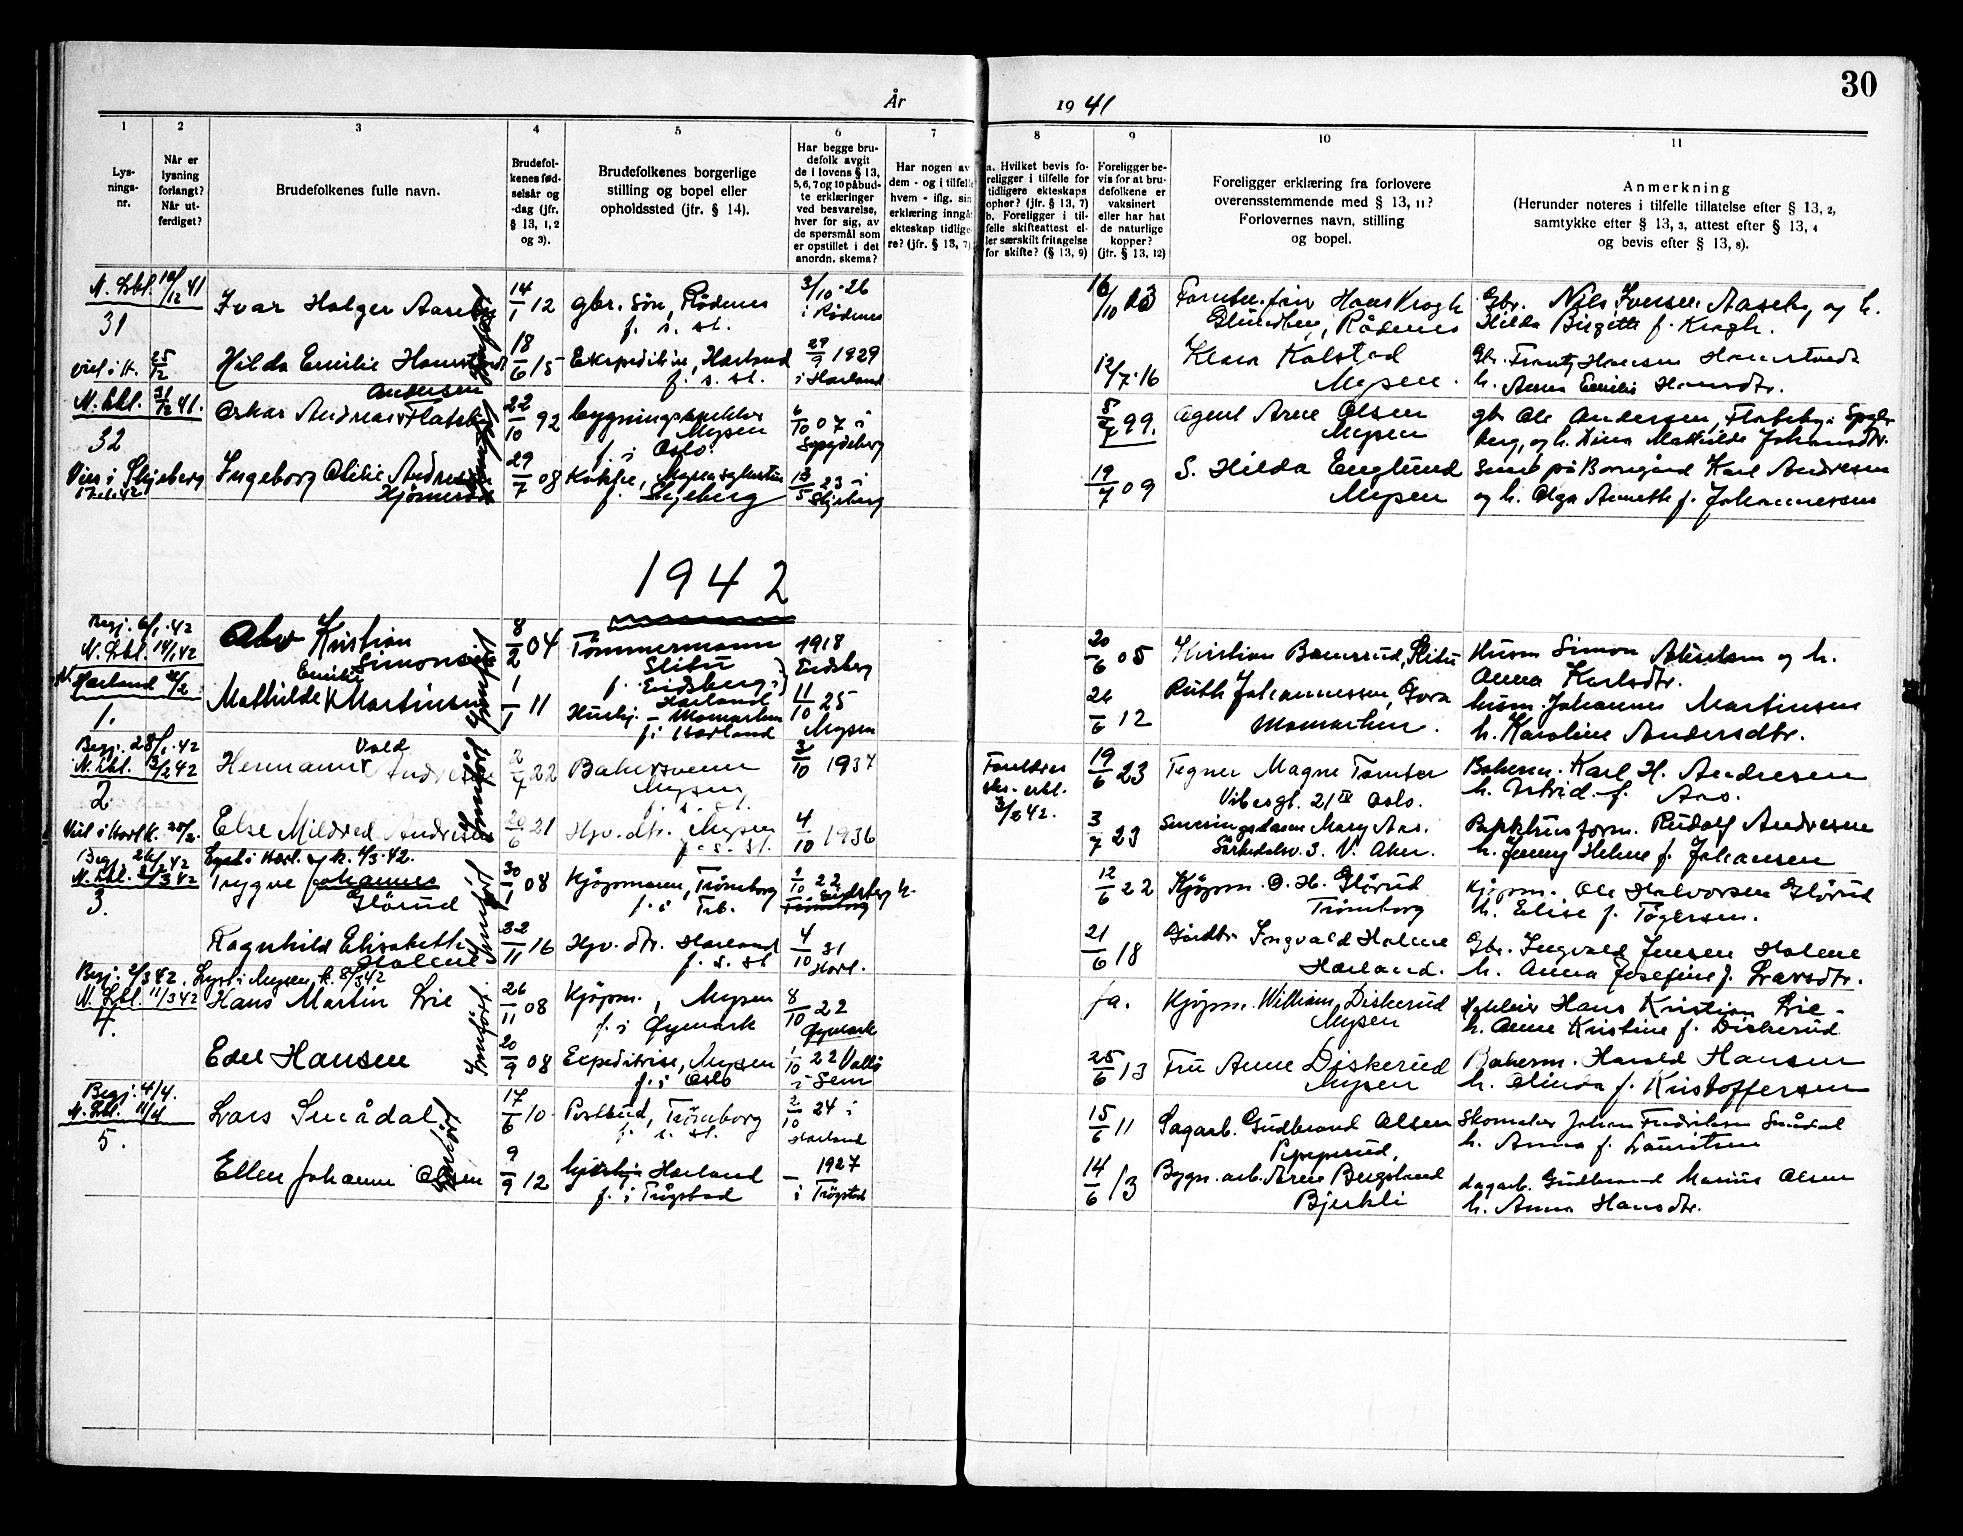 30
År
19 41
1
2
3
4
5
6
7
8
9
10
11
Lys-
nings-
nr.
Når er
lysning
forlangt?
Når ut-
ferdiget?
Brudefolkenes fulle navn.
Brudefol-
kenes fød-
selsår og
-dag (jfr.
§ 13, 1, 2
og 3).
Brudefolkenes borgerlige
stilling og bopel eller
opholdssted (jfr. § 14).
Har begge bru-
defolk avgit
de i lovens § 13,
5, 6, 7 og 10 påbud-
te erklæringer
ved besvarelse,
hver for sig, av
de spørsmål som
er opstillet i det
anordn. skema?
Har nogen av
dem - og i tilfelle
hvem - iflg. sin
erklæring inngått
ekteskap tidlige-
re? (jfr. § 13, 7)
a. Hvilket bevis fo-
religger i tilfelle for
tidligere ekteskaps
ophør? (jfr. § 13, 7)
b. Foreligger i til-
felle skifteattest el-
ler særskilt fritagelse
for skifte? (§ 13, 9)
Foreligger be-
vis for at bru-
defolkene er
vaksinert
eller har hat
de naturlige
kopper?
(jfr. § 13, 12)
Foreligger erklæring fra forlovere
overensstemmende med § 13, 11?
Forlovernes navn, stilling
og bopel.
Anmerkning
(Herunder noteres i tilfelle tillatelse efter § 13, 2,
samtykke efter § 13, 3, attest efter § 13, 4
og bevis efter § 13, 8).
N. Lbl. 10/12 41
31
Ivar Holger Aaseby
14/1 12
gbr. søn, Rødenes
f. s. st.
3/10-26
i Rødenes
16/10 23
Hans Krogh
Rødenes
Gbr. Nils Iversen Aaseby og h.
Hilda Birgitte f. Krogh.
25/12
Hilda Emilie
18/6 15
Harland
f. s. st.
29/9 1929
i Harland
12/7.16
Klara Kolstad
Mysen.
Gbr. Frantz Hansen
h. Anna Emilie Hansdtr.
N. Lbl. 31/12 41.
32
Andersen
Oskar Andreas
22/10 92
Mysen
f. i Oslo.
6/10 07 i
Spydeberg
99.
Agent Arne Olsen
Mysen
gbr. Ole Andersen,
berg, og h. Mathilde Johansdtr.
Viet i Skjeberg
Ingeborg Otilie
29/7 08
Kokke,
f. Skjeberg
13/5 23 i
Skjeberg
19/7 09
S. Hilda Englund
Mysen
Karl Andresen
og h. Olga Annette f. Johannessen
1942
Begj. 6/1.42
N. Lbl. 14/1 42
1.
Alv Kristian
Simonsen
8/2 04
Tømmermann
Slitu
f. Eidsberg
1918
Eidsberg
20/6 05
Kristian Slitu
Husm. Simon og h.
Anna Karlsdtr.
Emilie
Mathilde Martinsen
1/1 11
Harland
Hushj. - Momarken
f. i Harland
11/10 25
Mysen
26/6 12
Ruth Johannessen,
Momarken.
husm. Johannes Martinsen
h. Karoline Andersdtr.
Begj. 28/1.42
N. Lbl. 13/2 42
2
Vald
Hermann Andresen
2/7 22
Bakersvenn
Mysen
f. s. st.
3/10 1937
Foreldres
3/2 42.
19/6 23
Tegner Magne Tomter
Vibesgt. 21 IV Oslo.
Bakerm. Karl H. Andresen
h. Astrid f. Aas.
Else Mildred Andresen
20/6 21
Hjv. dtr. Mysen
f. s. st.
4/10 1936
3/7 23
Mary Aas.
Sørkedalsv. 3. V. Aker.
Rudolf Andresen
h. Jenny Helene f. Johansen
Begj. 26/2 42
3.
Lyst i Harl. k. 1/3.42.
Trygve Johannes
Glørud
30/1 08
Kjøpmann, Trømborg
f. i Trb.
1/10 22
Eidsberg k.
12/6 22
Kjøpm. O. H. Glørud
Trømborg
Kjøpm. Ole Halvorsen Glørud
h. Elise f. Tøgersen.
Ragnhild Elisabeth
Holene
22/11 16
Hjv. dtr. Harland
f. s. st
4/10 31
Harl.
21/6 18
Ingvald Holene
Harland.
Gbr. Ingvald Jensen Holene
h. Anna Josefine f. Larsdtr.
Begj. 2/3 42. Lyst i Mysen k. 8/3 42
N. Lbl. 11/3 42
4.
Hans Martin Lie
26/11 08
Kjøpm., Mysen
f. i Øymark
8/10 22
Øymark
ja.
Kjøpm. William Diskerud
Mysen
Hans Kristian Lie -
h. Anne Kristine f. Diskerud
Edel Hansen
20/9 08
Expeditrise, Mysen
f. i Oslo
1/10 22
i Sem
25/6 13
Fru Anne Diskerud
Mysen
Bakerm. Harald Hansen
h. Olinda f. Kristoffersen
Begj. 4/4.
N. Lbl. 11/4
5.
Lars Smådal
17/6 10
Postbud, Trømborg
f. s. st.
2/10 24 i
Harland
15/6 11
Sagarb. Gudbrand Olsen
Skomaker Johan Fredriksen Smådal
h. Anna f. Lauritsen
Ellen Johanne Olsen
9/9 12
Harland
f. i Trøgstad
- 1927
i Trøgstad
14/6 13
Bygn. arb. Arne
Bjerkli
dagarb. Gudbrand Marius Olsen
h. Anna Hansdtr.